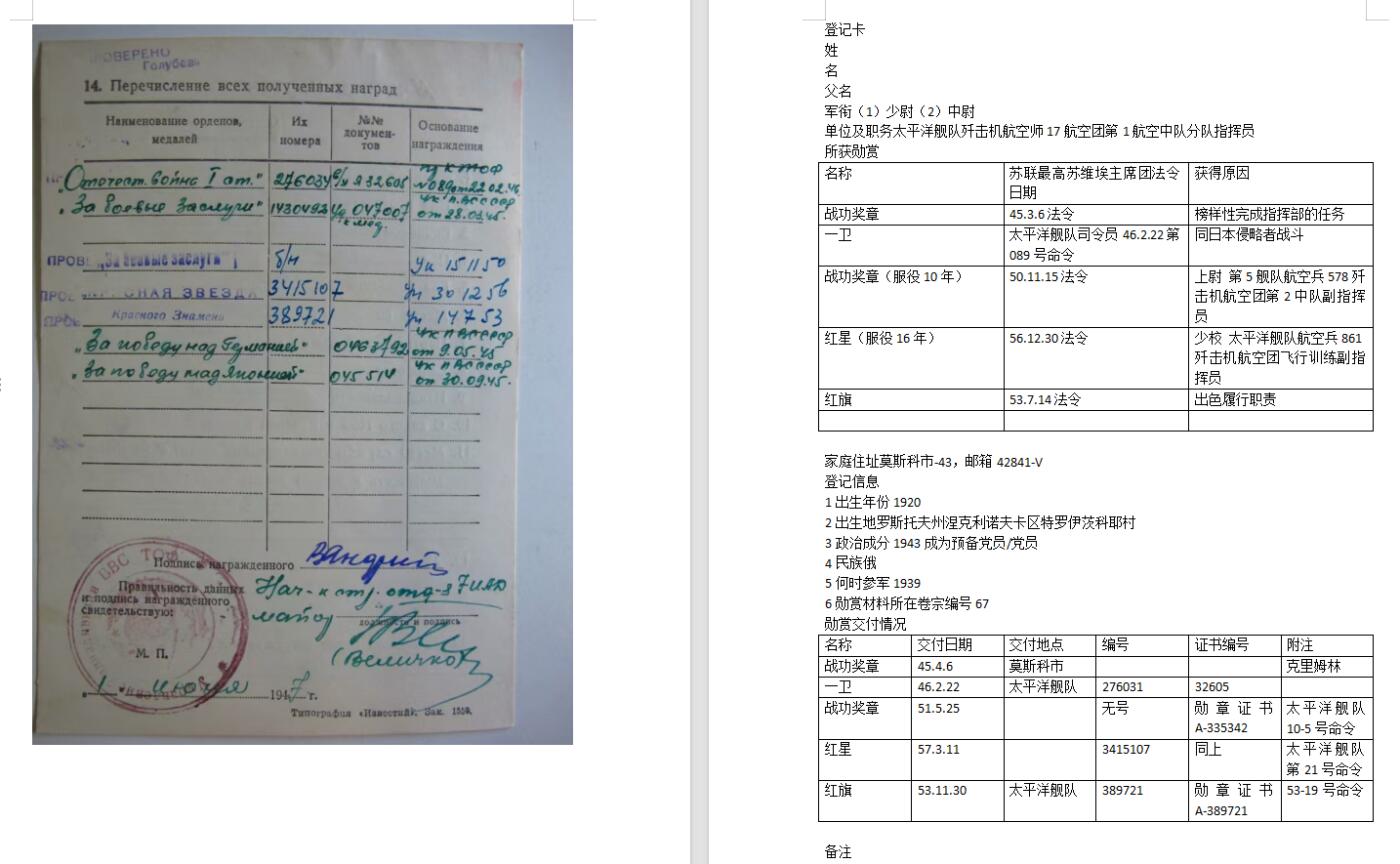 ПРОВЕРЕНО
Голубев
14. Перечисление всех полученных наград
Наименование орденов, медалей
Их номера
№№ документов
Основание награждения
„Отечест. войны I ст."
276034
932605
№ 089 от 22.02.46.
„За боевые заслуги"
1430493
Уд 047007
от 28.03.45.
к мед.
ПРОВЕ
„За боевые заслуги"
б/н
Ук 15 11 50
КРАСНАЯ ЗВЕЗДА
3415107
Ук 30 12 56
Красного Знамени
389721
Ук 14 7 53
„За победу над Германией"
0463792
от 9.05.45
„За победу над Японией"
045514
от 30.09.45.
Подпись награжденного
Правильность данных
и подпись награжденного
свидетельствую:
Нач-к стр. отд-я 7 ИАД
майор
должность и подпись
(Величко)
М. П.
„1" июля 1947 г.
Типография «Известий». Зак. 1559.
登记卡
姓
名
父名
军衔（1）少尉（2）中尉
单位及职务太平洋舰队歼击机航空师 17 航空团第 1 航空中队分队指挥员
所获勋赏
名称 苏联最高苏维埃主席团法令 获得原因
日期
战功奖章 45.3.6 法令 榜样性完成指挥部的任务
一卫 太平洋舰队司令员 46.2.22 第 同日本侵略者战斗
089 号命令
战功奖章（服役 10 年） 50.11.15 法令 上尉 第 5 舰队航空兵 578 歼
击机航空团第 2 中队副指挥
员
红星（服役 16 年） 56.12.30 法令 少校 太平洋舰队航空兵 861
歼击机航空团飞行训练副指
挥员
红旗 53.7.14 法令 出色履行职责
家庭住址莫斯科市-43，邮箱 42841-V
登记信息
1 出生年份 1920
2 出生地罗斯托夫州涅克利诺夫卡区特罗伊茨科耶村
3 政治成分 1943 成为预备党员/党员
4 民族俄
5 何时参军 1939
6 勋赏材料所在卷宗编号 67
勋赏交付情况
名称 交付日期 交付地点 编号 证书编号 附注
战功奖章 45.4.6 莫斯科市 克里姆林
一卫 46.2.22 太平洋舰队 276031 32605
战功奖章 51.5.25 无号 勋章证书 太平洋舰队
A-335342 10-5 号命令
红星 57.3.11 3415107 同上 太平洋舰队
第 21 号命令
红旗 53.11.30 太平洋舰队 389721 勋章证书 53-19 号命令
A-389721
备注